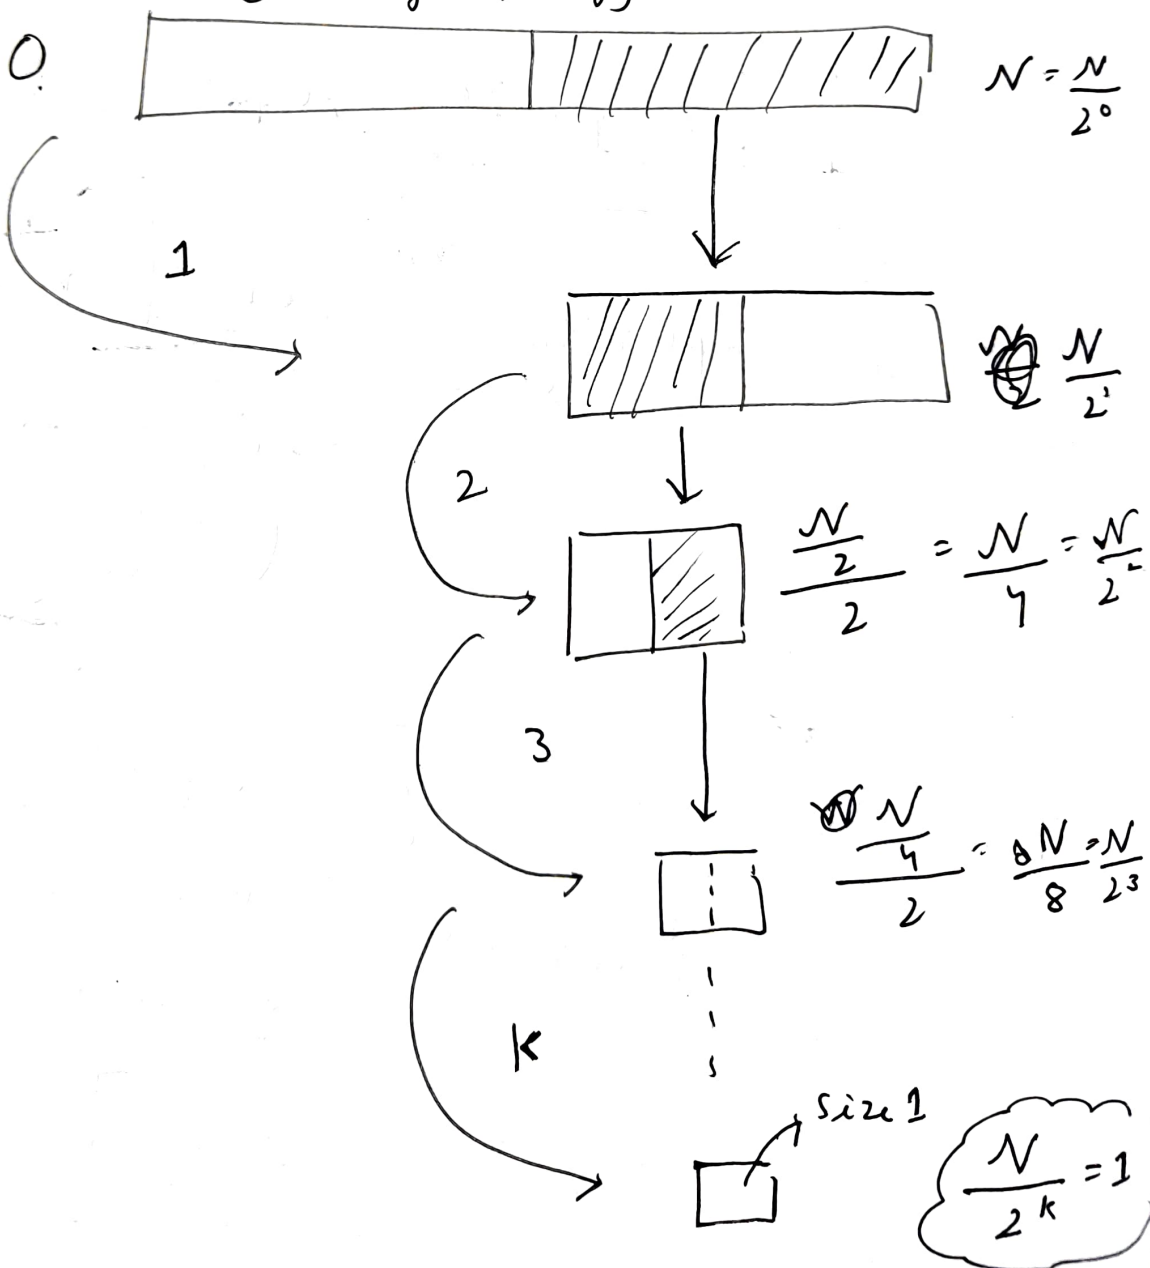 0.
N = N/2⁰
1
N/2¹
2
N/2/2 = N/4 = N/2²
3
N/4/2 = N/8 = N/2³
K
Size 1
N/2ᵏ = 1